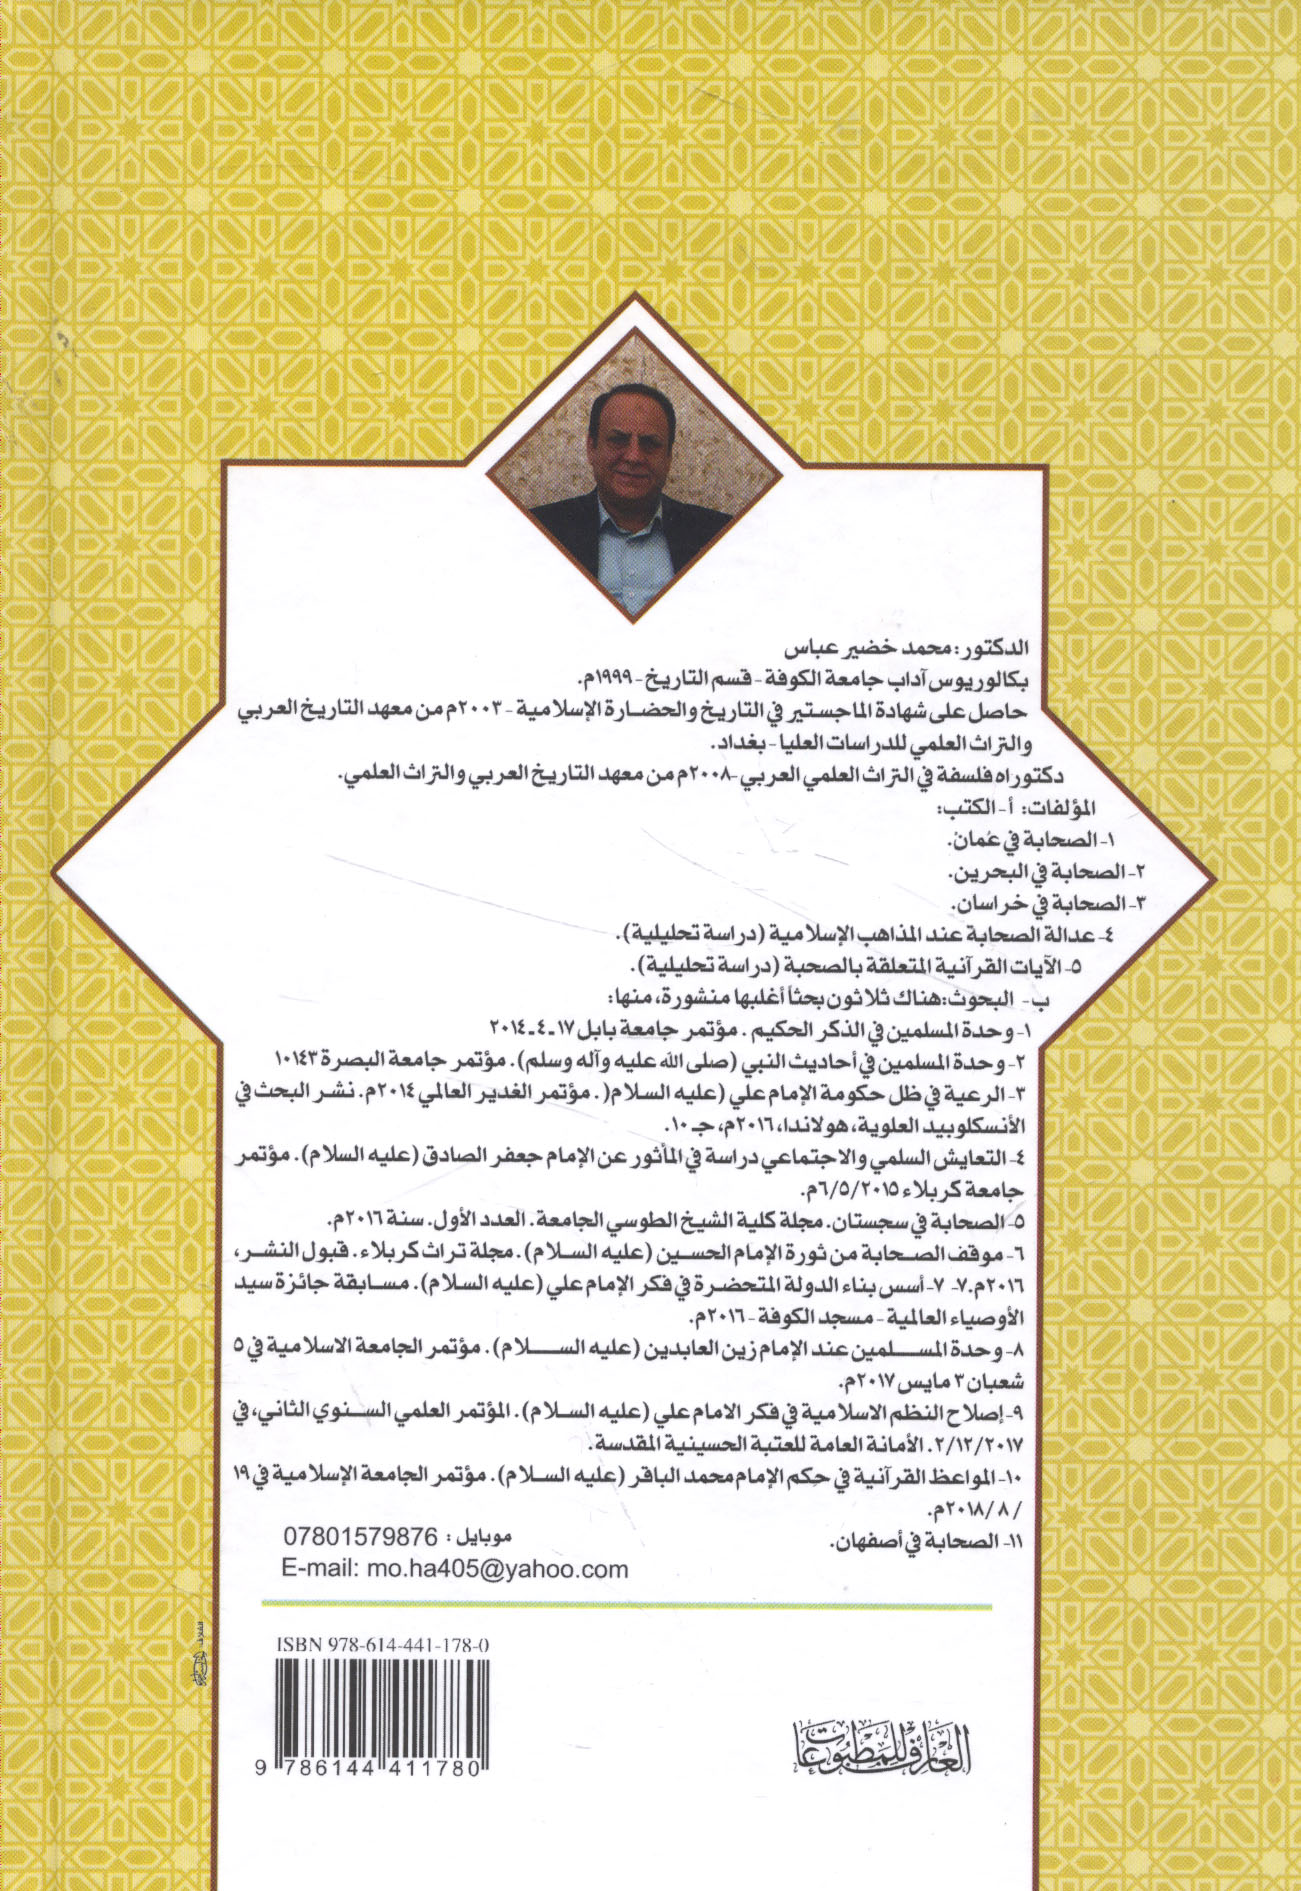 الدكتور: محمد خضير عباس
بكالوريوس آداب جامعة الكوفة - قسم التاريخ - ١٩٩٩م.
حاصل على شهادة الماجستير في التاريخ والحضارة الإسلامية - ٢٠٠٣م من معهد التاريخ العربي
والتراث العلمي للدراسات العليا - بغداد.
دكتوراه فلسفة في التراث العلمي العربي -٢٠٠٨م من معهد التاريخ العربي والتراث العلمي.
المؤلفات: أ - الكتب:
١- الصحابة في عُمان.
٢- الصحابة في البحرين.
٣- الصحابة في خراسان.
٤- عدالة الصحابة عند المذاهب الإسلامية (دراسة تحليلية).
٥- الآيات القرآنية المتعلقة بالصحبة (دراسة تحليلية).
ب- البحوث: هناك ثلاثون بحثاً أغلبها منشورة، منها:
١- وحدة المسلمين في الذكر الحكيم . مؤتمر جامعة بابل ١٧-٤-٢٠١٤
٢- وحدة المسلمين في أحاديث النبي (صلى الله عليه وآله وسلم). مؤتمر جامعة البصرة ١٠١٤٣
٣- الرعية في ظل حكومة الإمام علي (عليه السلام(. مؤتمر الغدير العالمي ٢٠١٤م. نشر البحث في
الأنسكلوبيد العلوية، هولاندا، ٢٠١٦م، جـ ١٠.
٤- التعايش السلمي والاجتماعي دراسة في المأثور عن الإمام جعفر الصادق (عليه السلام). مؤتمر
جامعة كربلاء ٦/٥/٢٠١٥م.
٥- الصحابة في سجستان. مجلة كلية الشيخ الطوسي الجامعة. العدد الأول. سنة ٢٠١٦م.
٦- موقف الصحابة من ثورة الإمام الحسين (عليه السلام). مجلة تراث كربلاء. قبول النشر،
٢٠١٦م.٧- ٧- أسس بناء الدولة المتحضرة في فكر الإمام علي (عليه السلام). مسابقة جائزة سيد
الأوصياء العالمية - مسجد الكوفة - ٢٠١٦م.
٨- وحدة المسلمين عند الإمام زين العابدين (عليه السلام). مؤتمر الجامعة الاسلامية في ٥
شعبان ٣ مايس ٢٠١٧م.
٩- إصلاح النظم الاسلامية في فكر الامام علي (عليه السلام). المؤتمر العلمي السنوي الثاني، في
٢/١٢/٢٠١٧. الأمانة العامة للعتبة الحسينية المقدسة.
١٠- المواعظ القرآنية في حِكم الإمام محمد الباقر (عليه السلام). مؤتمر الجامعة الإسلامية في ١٩
/ ٨/ ٢٠١٨م.
١١- الصحابة في أصفهان.
موبايل : 07801579876
E-mail: mo.ha405@yahoo.com
ISBN 978-614-441-178-0
9 786144 411780
العارف للمطبوعات
الغلاف: